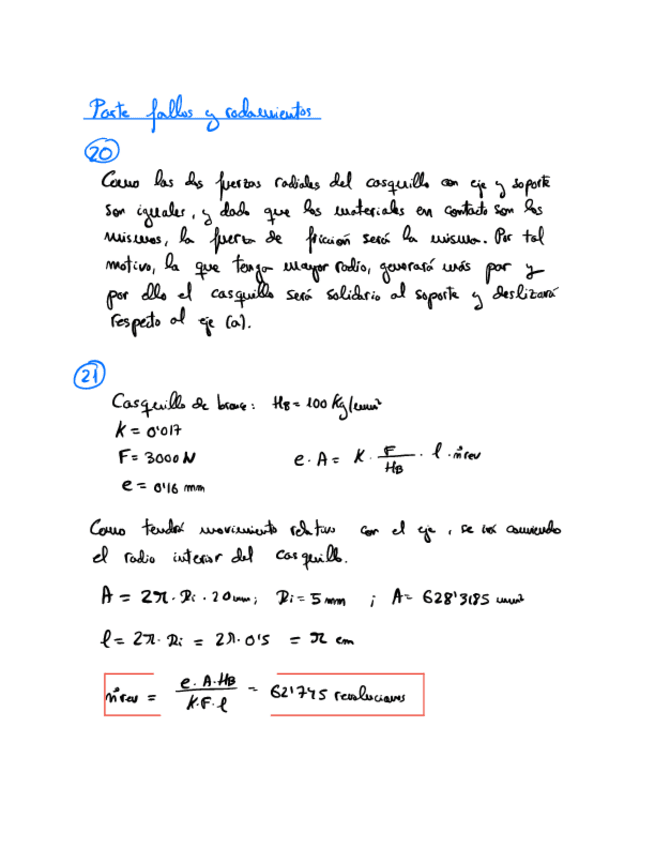 Parte fallos y rodamientos
20
Como las dos fuerzas radiales del casquillo con eje y soporte
son iguales, y dado que los materiales en contacto son los
mismos, la fuerza de fricción será la misma. Por tal
motivo, la que tenga mayor radio, generará más par y
por ello el casquillo será solidario al soporte y deslizará
respecto al eje (a).
21
Casquillo de bronce: HB = 100 Kg/mm²
K = 0'017
F = 3000 N
e · A = K · F/HB · l · nºrev
e = 0'16 mm
Como tendrá movimiento relativo con el eje, se irá comiendo
el radio interior del casquillo.
A = 2π · Ri · 20mm; Ri = 5 mm ; A = 628'3185 mm²
l = 2π · Ri = 2π · 0'5 = π cm
nºrev = e · A · HB / K · F · l = 621'745 revoluciones